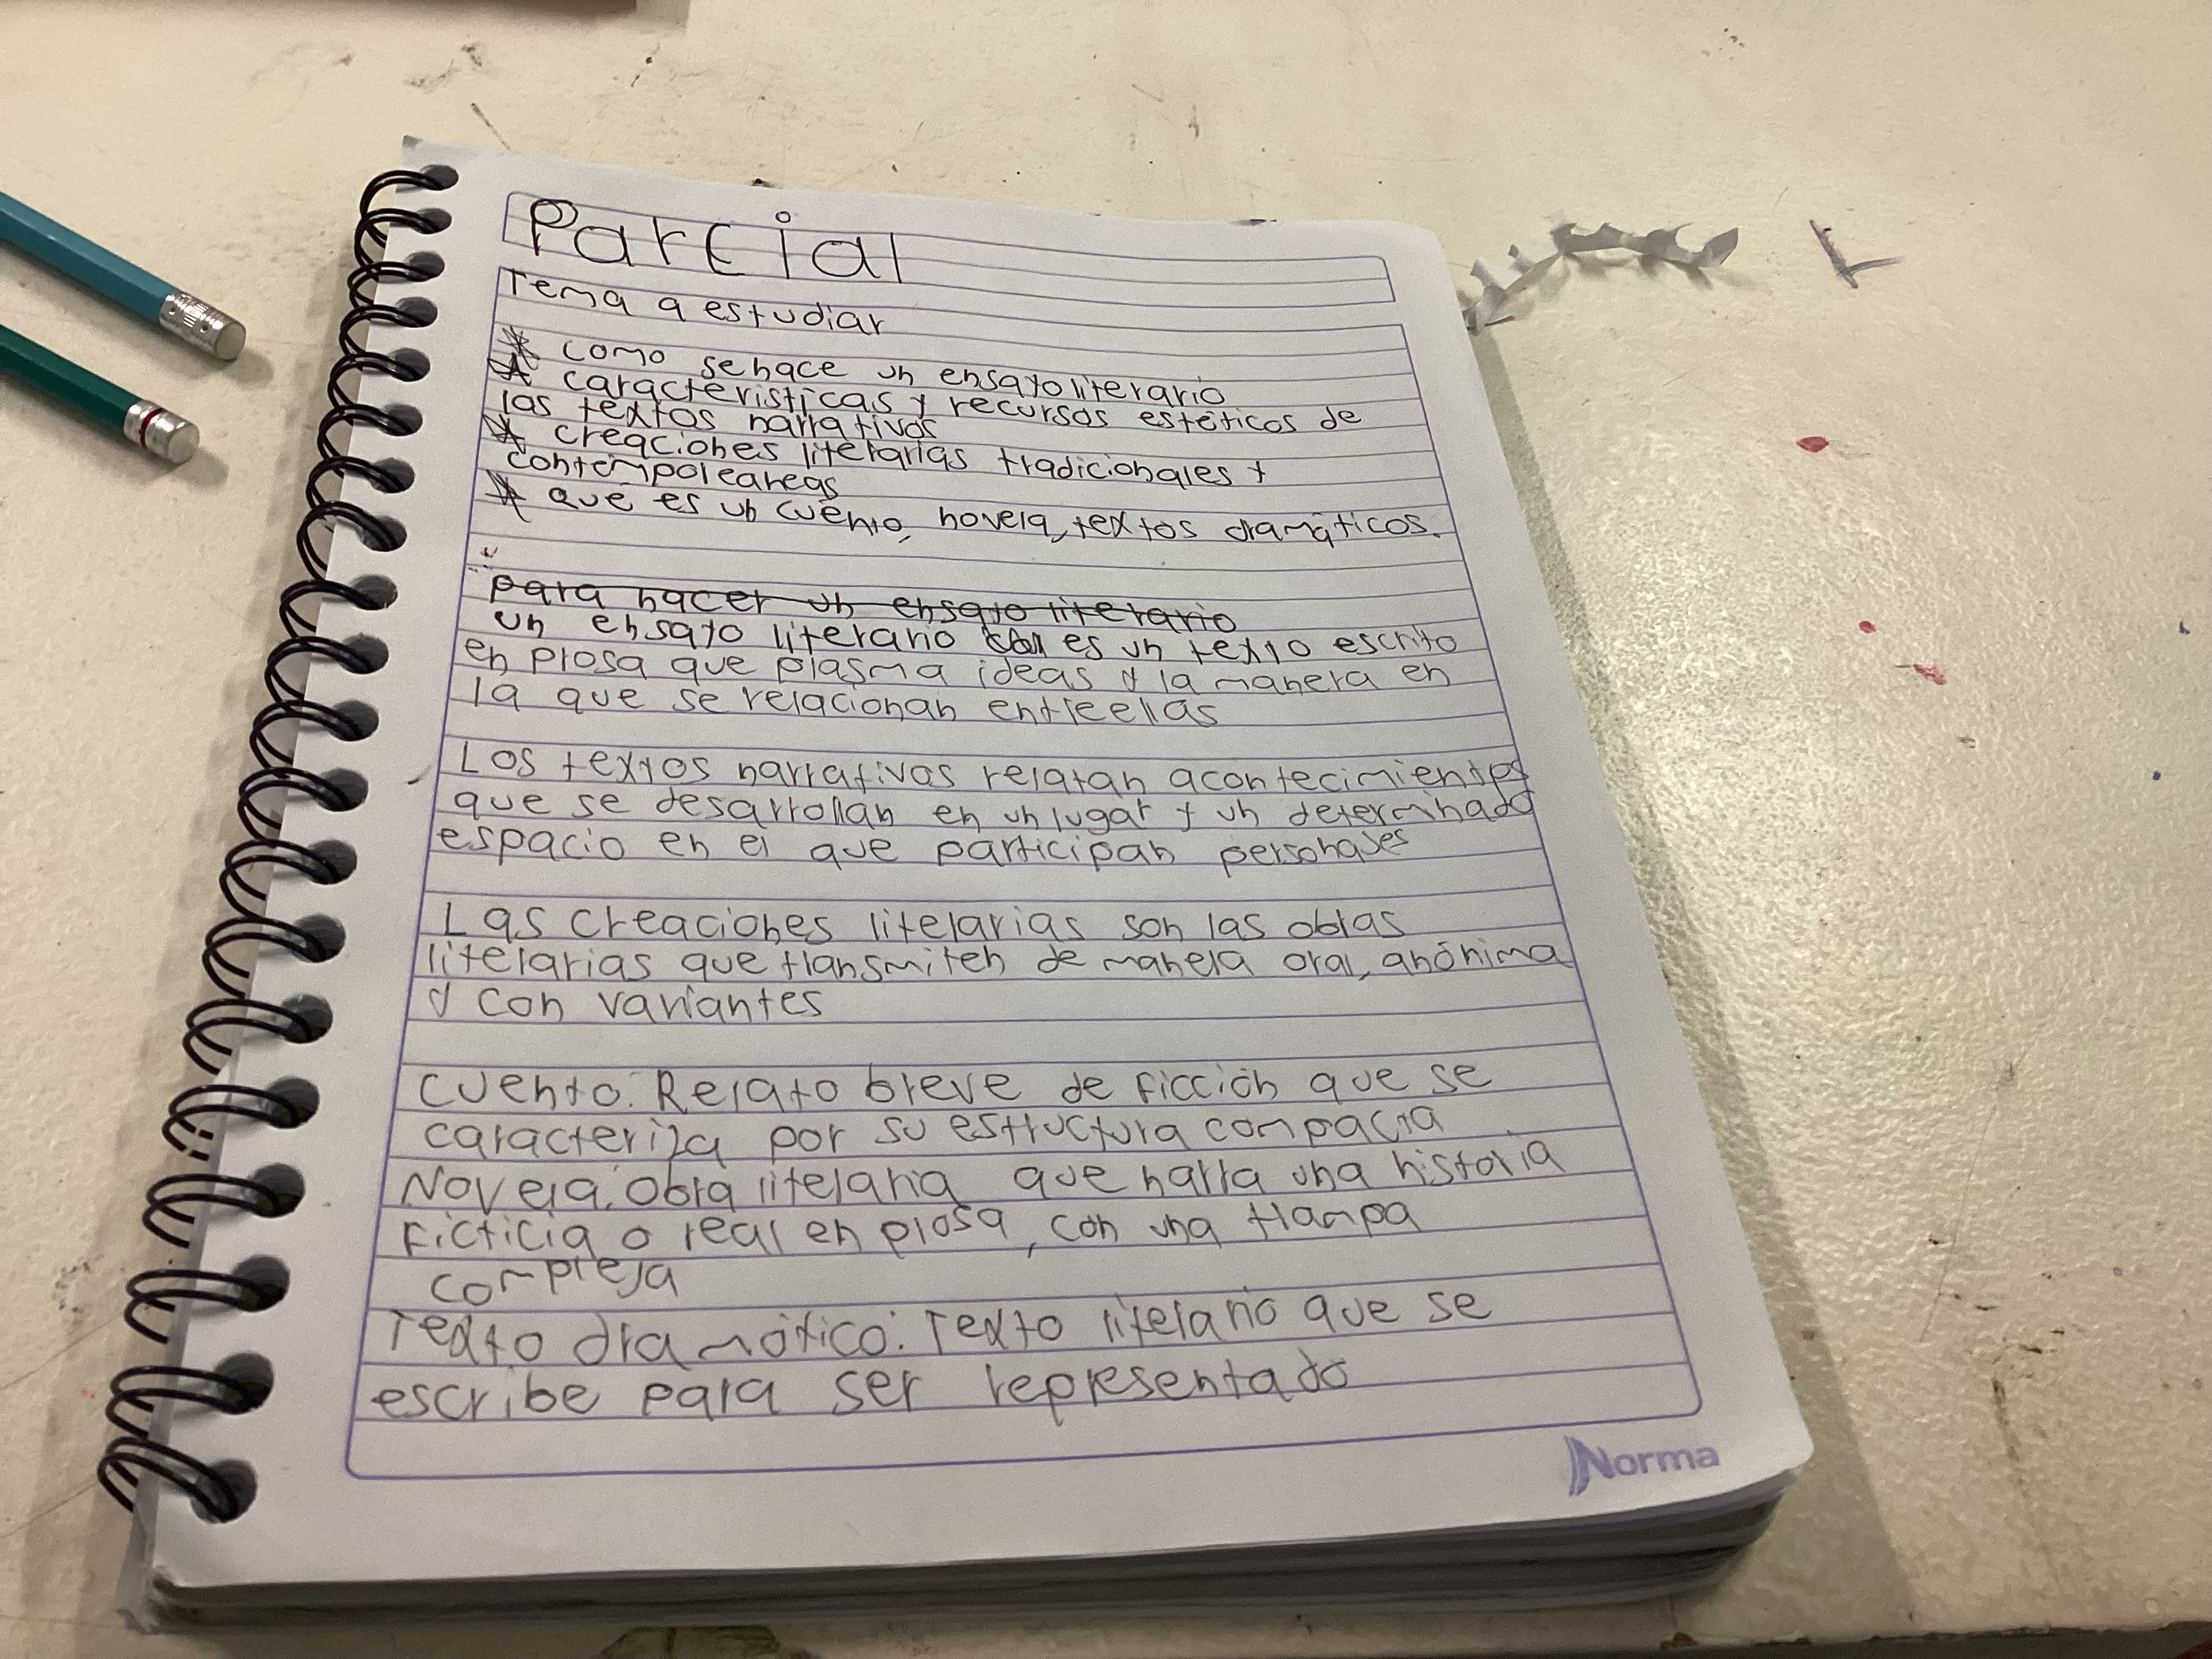 Parcial
Tema a estudiar
* como se hace un ensayo literario
* caracteristicas y recursos estéticos de
las textos narrativos
* creaciones literarias tradicionales y
contempoleareas
* que es un cuento, novela, textos dramáticos.
para hacer un ensayo literario
un ensayo literario es un texto escrito
en prosa que plasma ideas y la manera en
la que se relacionan entre ellas
Los textos narrativos relatan acontecimientos
que se desarrollan en un lugar y un determinado
espacio en el que participan personajes
Las creaciones literarias son las obras
literarias que transmiten de manera oral, anónima
y con variantes
cuento: Relato breve de ficción que se
caracteriza por su estructura compacta
Novela: Obra literaria que narra una historia
ficticia o real en prosa, con una trampa
compleja
Texto dramático: Texto literario que se
escribe para ser representado
Norma